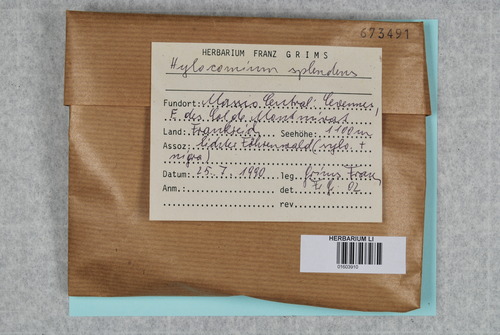 673491
HERBARIUM FRANZ GRIMS
Hylocomium splendens
Fundort: Massiv Central: Cevennes,
E des Col de Montmirat
Land: Frankreich Seehöhe: 1100m
Assoz: lichter Föhrenwald (sylv. +
nigra)
Datum: 25. 7. 1990 leg. Grims Franz
Anm.: det
rev.
HERBARIUM LI
01603910